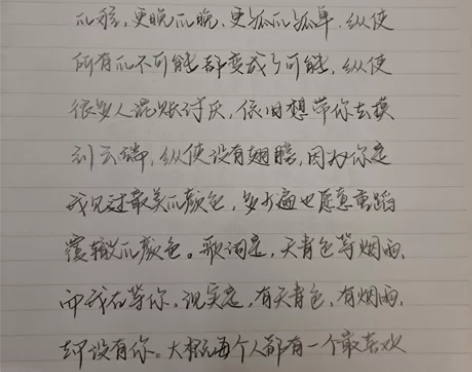 的路，更晚的晚，更孤的孤单，纵使
所有的不可能都变成了可能，纵使
很多人混账讨厌，依旧想带你去摸
到云端，纵使没有翅膀，因为你是
我见过最美的颜色，多少遍也愿意重蹈
覆辙的颜色。歌词是，天青色等烟雨，
而我在等你，现实是，有天青色，有烟雨，
却没有你。大概每个人都有一个最喜欢